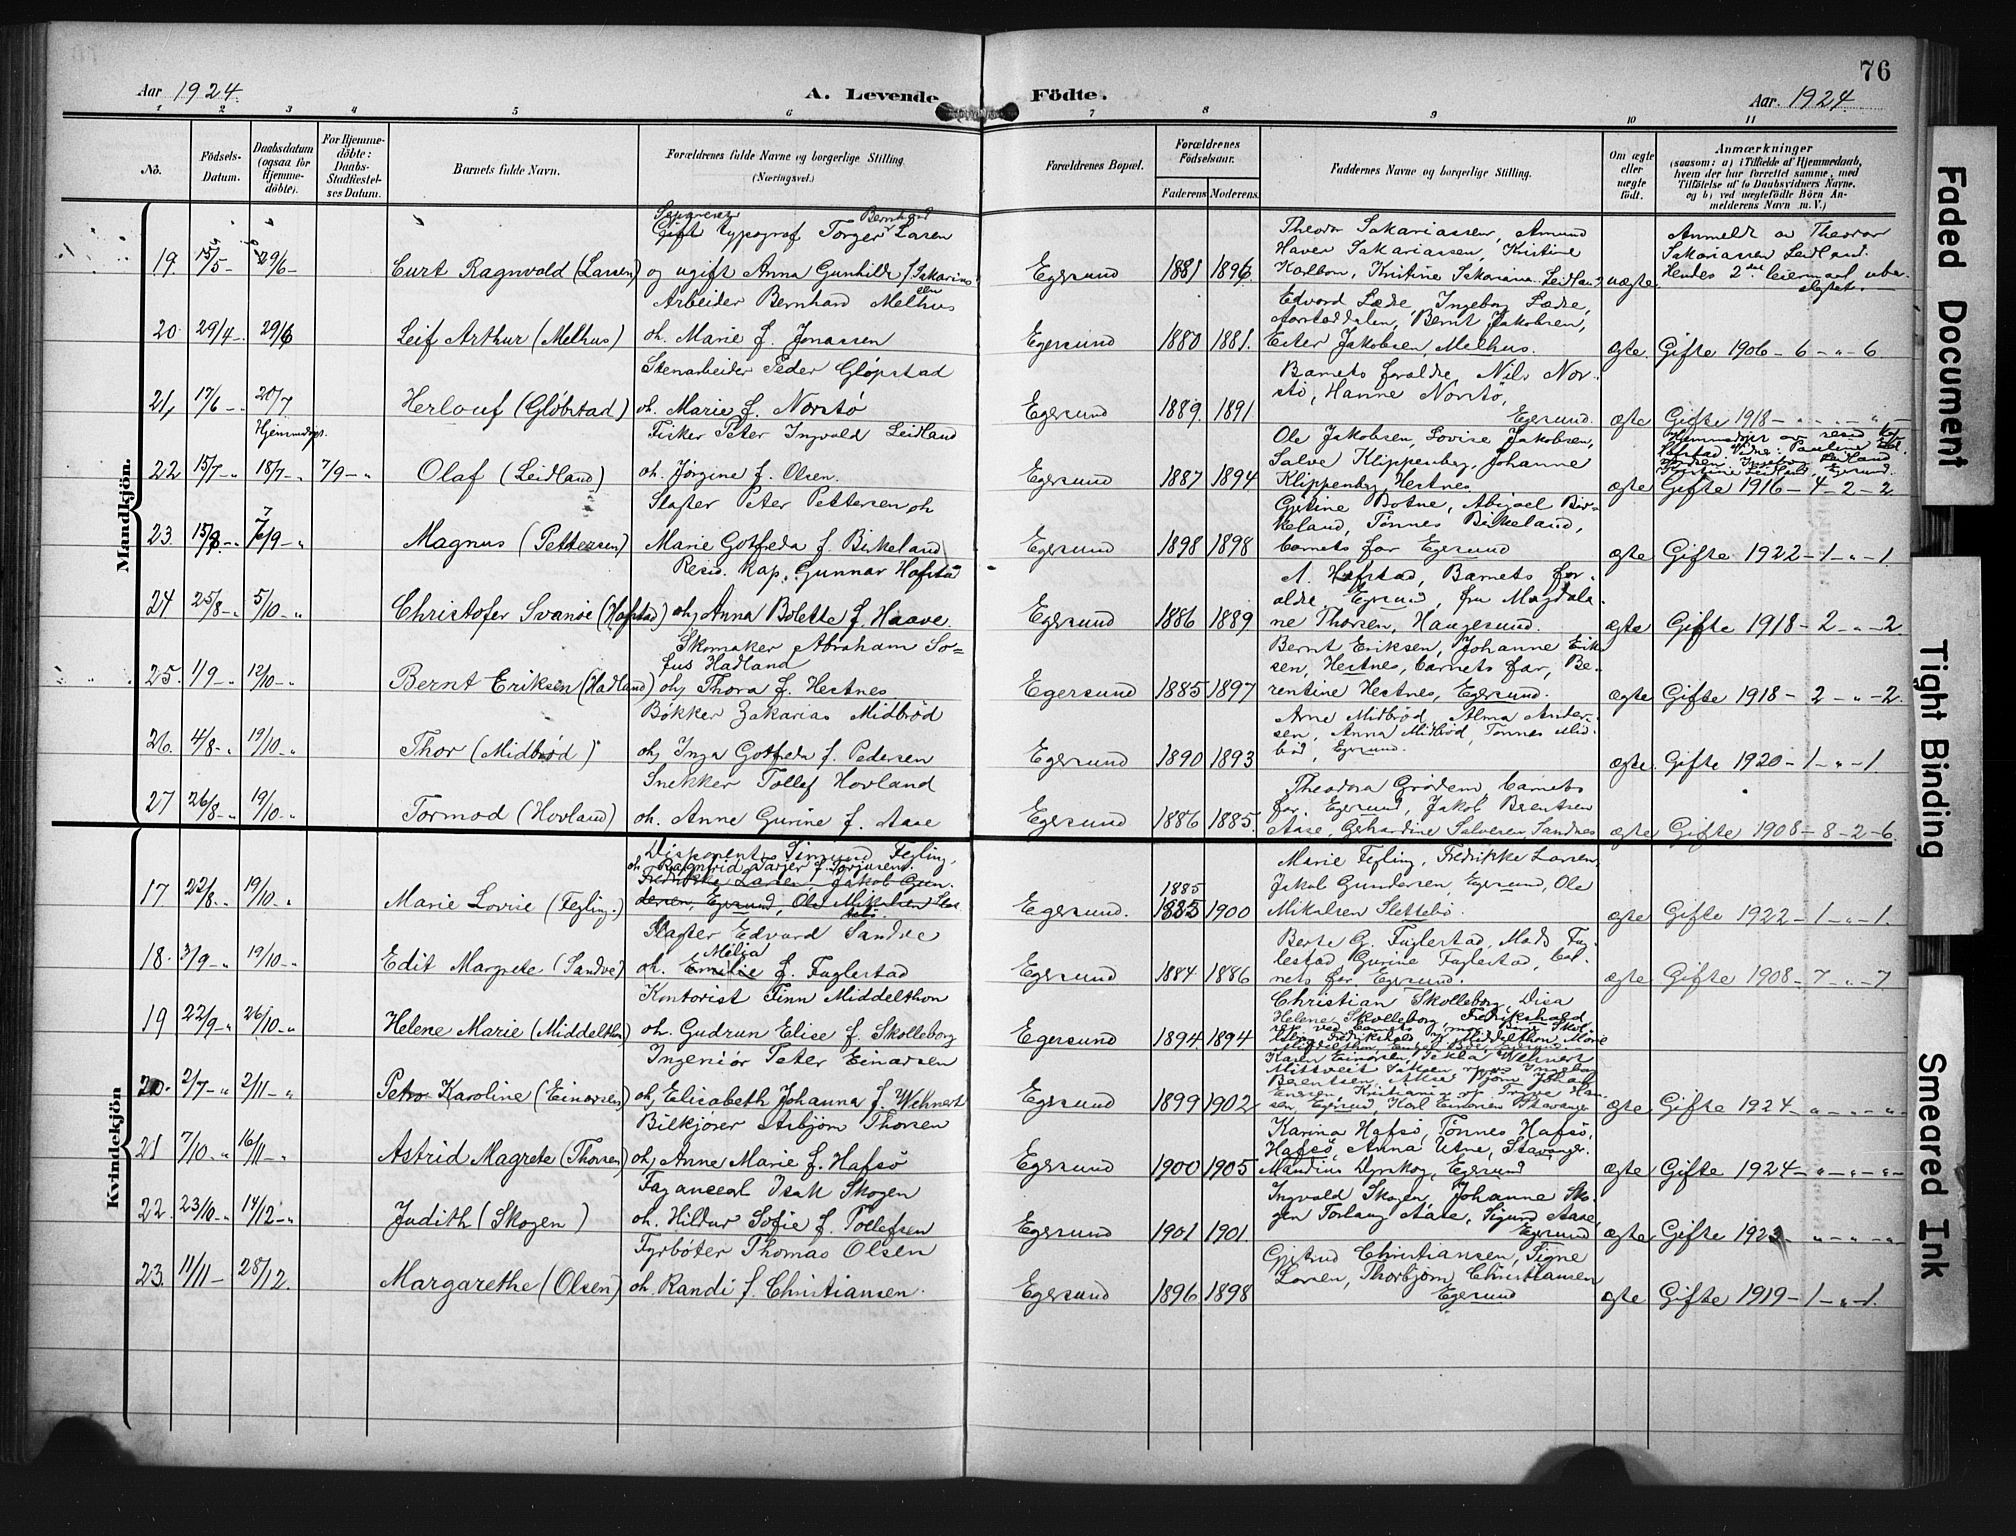 76
Aar 1924.
A. Levende
Födte.
Aar. 1924.
1 2 3 4 5 6 7 8 9 10 11
No.
Födsels-
Datum.
Daabsdatum
(ogsaa for
Hjemme-
döbte).
For Hjemme-
döbte:
Daabs-
Stadfæstel-
ses Datum.
Barnets fulde Navn.
Forældrenes fulde Navne og borgerlige Stilling.
(Næringsvei.)
Forældrenes Bopæl.
Forældrenes
Födselsaar.
Faderens Moderens
Faddernes Navne og borgerlige Stilling.
Om ægte
eller
uægte
født.
Anmærkninger
(saasom: a) i Tilfælde af Hjemmedaab,
hvem der har forrettet samme, med
Tilföielse af to Daabsvidners Navne,
og b) ved uægtefödte Börn An-
melderens Navn m. V.)
Mandkjön.
19. 15/5 - 29/6 - Curt Ragnvald (Larsen)
Gift typograf Torger Bernhard Larsen
og ugift Anna Gunhilde Sakarias
sen
Egersund 1881 1896
Theodor Sakariassen, Amund
Haver Sakariassen, Kristine
Karlson, Kristine Sakariasen Leidland
uægte
Anmeldt av Theodor
Sakariassen Leidland.
Hendes 2det leiermaal
20. 29/4 - 29/6 Leif Arthur (Melhus)
Arbeider Bernhard Melhus
oh. Marie f. Jonassen
Egersund 1880 1881.
Edvard Læde, Ingeborg Læde,
Aarstaddalen, Bernt Jakobsen,
Ester Jakobsen, Melhus.
ægte Gifte 1906 - 6 - " - 6
21, 17/6 - " 20/7 Herlouf (Glöbstad)
Stenarbeider Peder Glöpstad
oh. Marie f. Norstø
Egersund 1889. 1891
Barnets foraldre, Nils Nor-
stø, Hanne Norstø,
Egersund.
ægte Gifte 1918 -
Hjemmedøpt.
22 15/7 - " 18/7 - " 7/9 - " Olaf (Leidland)
Fisker Peter Ingvald Leidland
oh. Jørgine f. Olsen.
Egersund 1887 1894
Ole Jakobsen, Lovise Jakobsen,
Salve Klippenberg, Johanne
Klippenberg Hestnes
ægte Gifte 1916 - 4 - 2 - 2
23. 15/8 - " 7/9 - " Magnus (Pettersen)
Slagter Peter Pettersen oh
Marie Gotfreda f. Birkeland
Egersund 1898 1898
Gjertine Botne, Abigael Bir-
keland, Tønnes Birkeland,
barnets far Egersund
ægte Gifte 1922 - 1 - " - 1
24 25/8 - " 5/10 - " Christofer Svanøe (Hofstad)
Resid. Kap. Gunnar Hofstad
oh, Anna Bolette f. Haave.
Egersund 1886 1889
A. Hofstad, Barnets for-
aldre Egersund, fru Magdale-
ne Thorsen, Haugesund.
ægte Gifte 1918 - 2 - " - 2.
25. 1/9 - " 12/10 - " Bernt Eriksen (Hadland)
Skomaker Abraham So=
fus Hadland
oh, Thora f. Hestnes.
Egersund 1885 1897
Bernt Eriksen, Johanne Erik-
sen, Hestnes, barnets far, Be-
rentine Hestnes, Egersund.
ægte Gifte 1918 - 2 - " - 2.
26. 4/8 - " 19/10 - " Thor (Midbrød)
Bøkker Zakarias Midbrød
oh, Inga Gotfreda f. Pedersen
Egersund 1890 1893
Arne Midbrød, Alma Ander-
sen, Anna Midbrød, Tønnes Mid-
brød, Egersund.
ægte. Gifte 1920 - 1 - " - 1.
27 26/8 - " 19/10 - " Tormod (Hovland)
Snekker Tollef Hovland
oh. Anne Gurine f. Aase
Egersund 1886 1885.
Theodora Grødem, barnets
far, Egersund, Jakob Berentsen
Aase, Gehardine Salvesen Sandnes
ægte Gifte 1908 - 8 - 2 - 6
Kvindekjön
17 22/8 - " 19/10 - " Marie Lovise (Fegling.)
Disponent Simund Fegling,
oh Ragnfrid Varjer f. Torjusen
Fredrikke Larsen, Jakob Gun-
dersen, Egersund, Ole Mikalsen Slet-
tebø
Egersund. 1885 1885 1900
Marie Fegling, Fredrikke Larsen,
Jakob Gundersen, Egersund, Ole
Mikalsen Slettebø.
ægte Gifte 1922 - 1 - " - 1.
18. 3/9 - " 19/10 - " Edit Margrete (Sandve)
Slagter Edvard Sandve
Melja
oh. Emilie f. Fuglestad
Egersund 1884 1886
Berte G. Fuglestad, Mads Fug-
lestad, Gurine Fuglestad, bar-
nets far, Egersund.
ægte Gifte 1908 - 7 - " - 7
19 22/9 - " 26/10 - " Helene Marie (Middelthon)
Kontorist Finn Middelthon
oh. Gudrun Elise f. Skolleborg
Egersund 1894 1894
Christian Skolleborg, Disa
Helene Skolleborg, Fredrikshald
20. 2/7 - " 2/11 - " Petra Karoline (Einarsen)
Ingeniør Peter Einarsen
oh, Elisabeth Johanna f. Wehnert
Egersund 1899 1902
Karen Einarsen, Tekla Wehnert
ægte Gifte 1924 - " - " - "
21 7/10 - " 16/11 - " Astrid Magrete (Thorsen)
Bilkjører Asbjørn Thorsen
oh, Anne Marie f. Hafsø
Egersund 1900 1905
Karina Hafsø, Tønnes Hafsø,
Hafsø, Anna Utne, Stavanger.
Mandius Dyrskog, Egersund
ægte Gifte 1924 - " - " - "
22. 23/10 - " 14/12 - " Judith (Skogen)
Fajanseal. Isak Skogen
oh. Hildur Sofie f. Tollefsen
Egersund 1901 1901.
Ingvald Skogen, Johanne Sko-
gen Torlaug Aase, Sigurd Aase,
Egersund
ægte Gifte 1923 " - " - "
23. 11/11 - 28/12. Margarethe (Olsen)
Fyrbøter Thomas Olsen
oh. Randi f. Christiansen.
Egersund 1896 1898
Gjertrud Christiansen, Signe
Larsen, Thorbjørn Christiansen
Egersund
ægte Gifte 1919 - 1 - " - 1.
Faded Document
Tight Binding
Smeared Ink